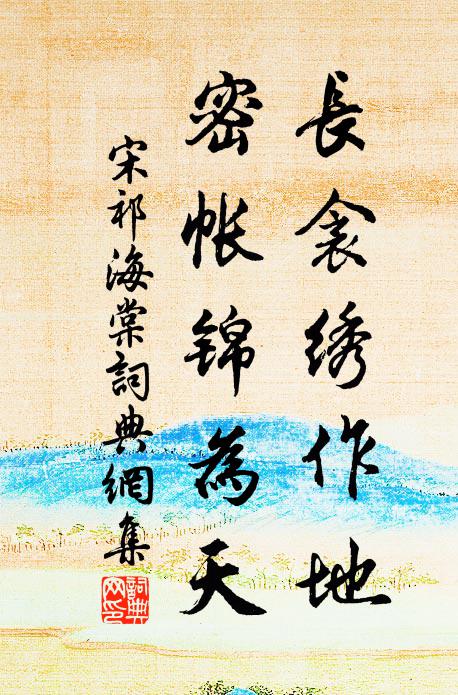 長衾绣作地
密帐锦為天
宋祁海棠詞典網集
詞典